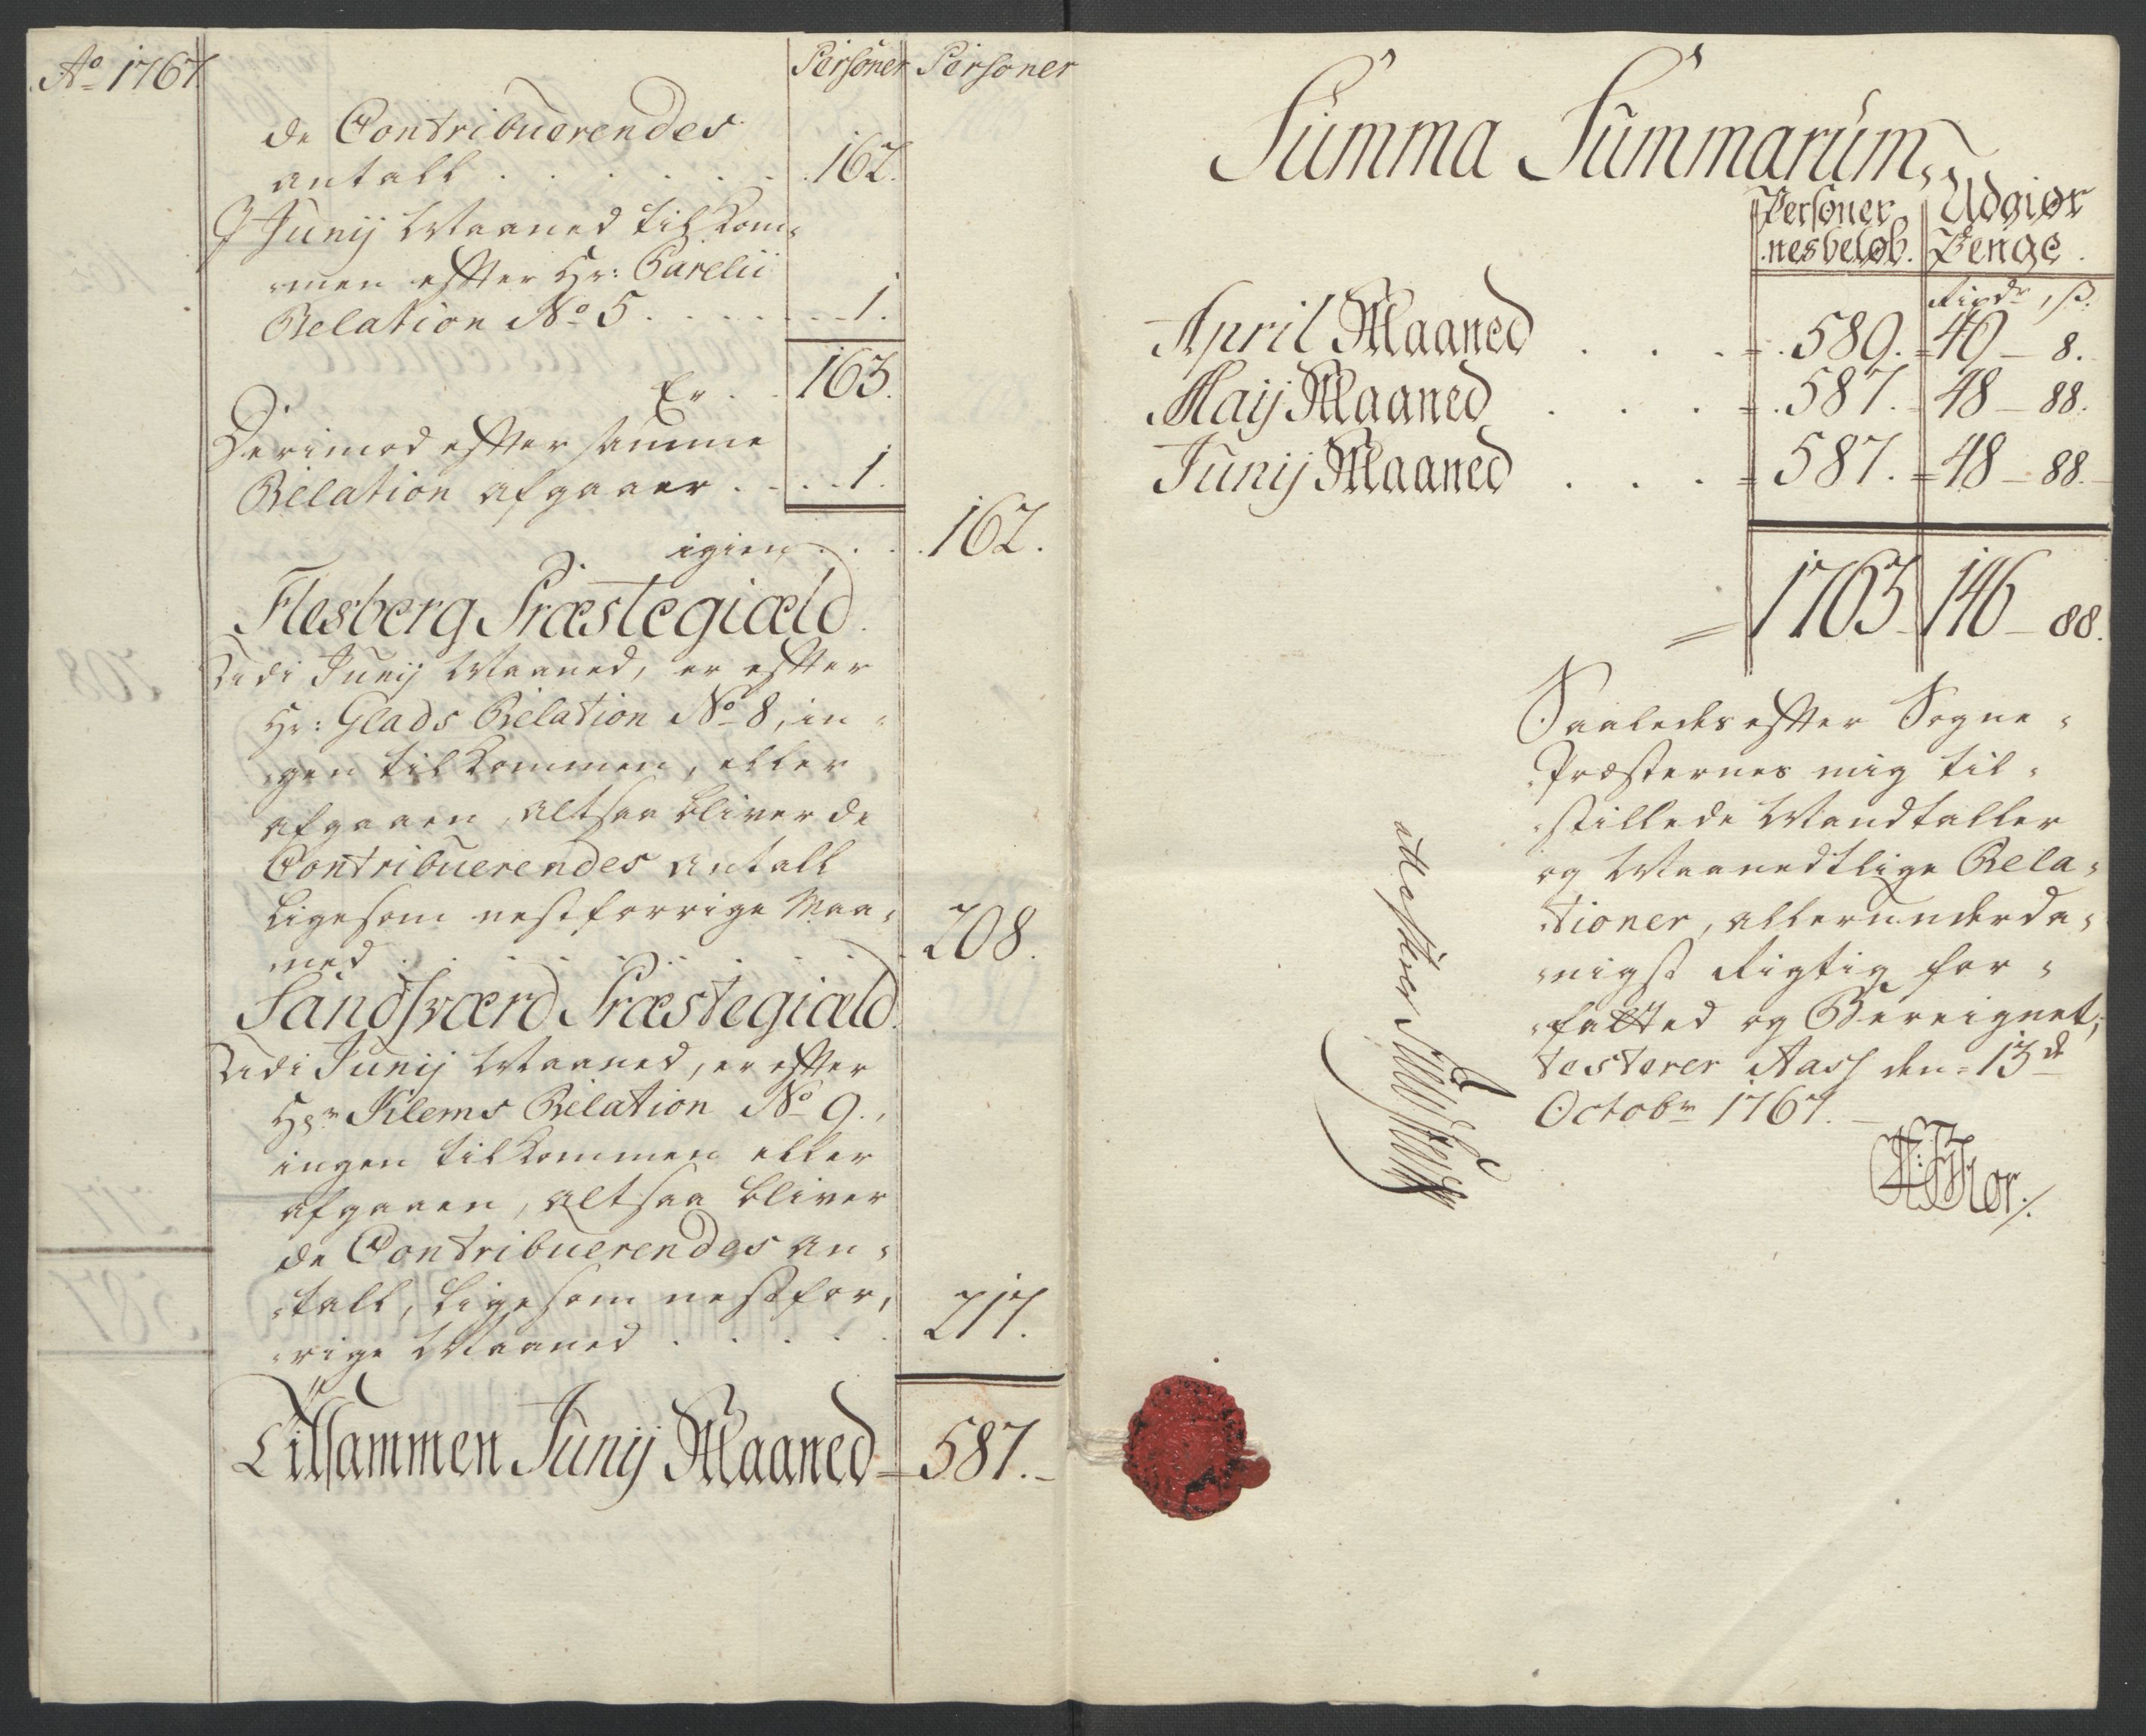 Ao 1767.
Personer
Personer
de Contribuerendes
antall . . . . . . 162.
I Junij Maaned tilkom-
men efter Hr: Barelii
Relation No 5 . . . . . 1.
Er . . 163.
Derimod efter samme
Relation afgaaer . . . 1.
igien . . . 162.
Flesberg Præstegiæld.
Udi Junij Maaned, er efter
Hr: Glads Relation No 8, in-
gen tilkommen, eller
afgaaen, altsaa bliver de
Contribuerendes antall
ligesom nestforrige Maa-
ned . . . . . . . . 208.
Sandsværd Præstegiæld.
Udi Junij Maaned, er efter
Hr Klems Relation No 9.,
ingen tilkommen eller
afgaaen, altsaa bliver
de Contribuerendes an-
tall, ligesom nestfor-
rige Maaned . . . . . 217.
Tilsammen Junij Maaned = 587.-
Summa Summarum,
Personer
nesbeløb.
Udgiør
Penge.
Rixdr , ß.
April Maaned . . . = . 589. = 49 - 8.
Maij Maaned . . . = . 587. = 48 - 88.
Junij Maaned . . . = 587. = 48 - 88.
= 1763 146 - 88.
Saaledes efter Sogne-
Præsternes mig til-
stillede Mandtaller
og Maanedtlige Rela-
tioner, allerunderda-
nigst Rigtig for-
fatted og Bereignet,
testerer Aass den 13de
Octobr 1767.
attesterer